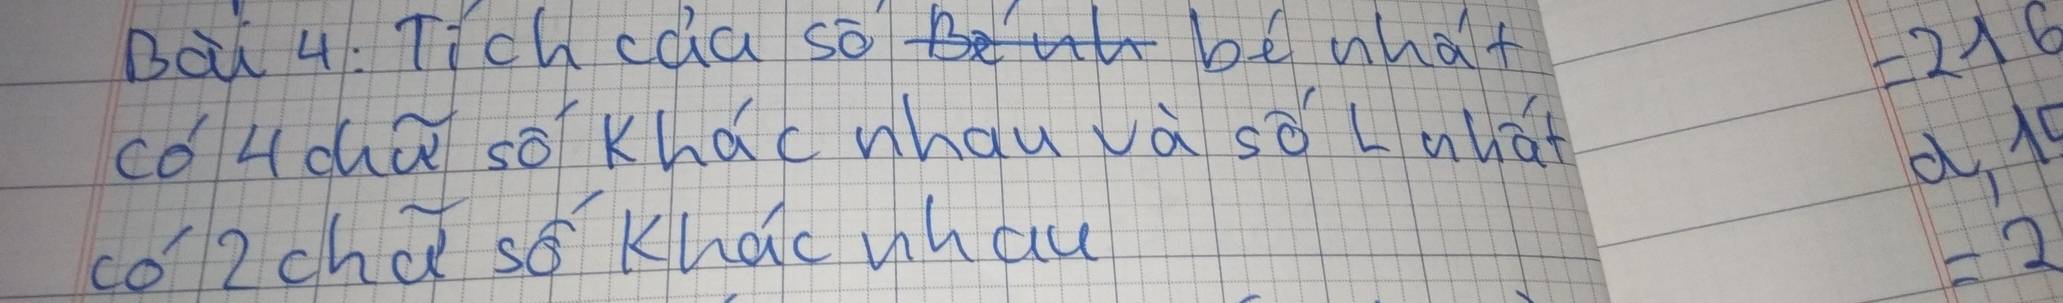 Bài 4: Tích của số bé nhất
có 4 chữ số khác nhau và số L nhất
có 2 chữ số khác nhau
= 216
d, 15
= 2